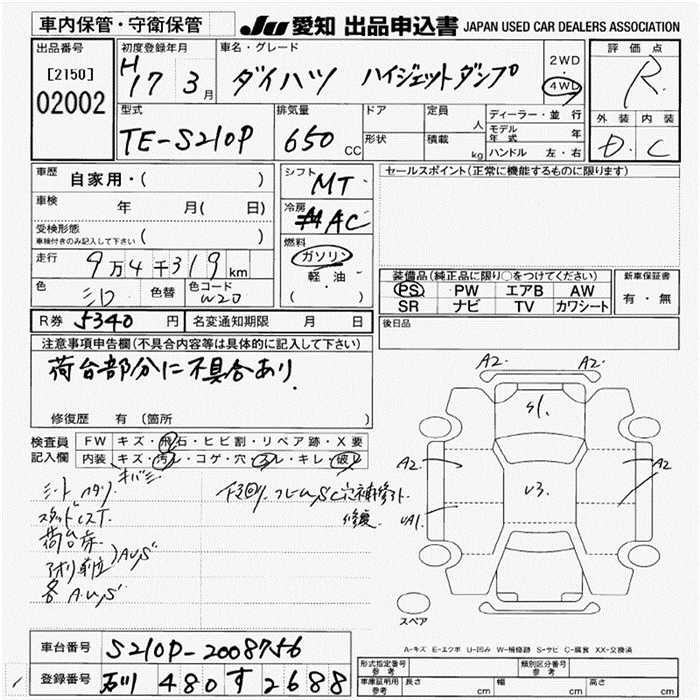 車内保管・守衛保管 JU 愛知 出品申込書 JAPAN USED CAR DEALERS ASSOCIATION
出品番号 初度登録年月 車名・グレード 2WD・4WD 評価点
[2150] H17 3月 ダイハツ ハイジェットダンプ R
02002
型式 排気量 ドア 定員 人 ディーラー・並行 外装 内装
TE-S210P 650 CC 形状 積載 kg モデル年式 年 D C
ハンドル 左・右
車歴 自家用・( ) シフト MT セールスポイント(正常に機能するものに限ります)
車検 年 月( 日) 冷房 AC
受検形態 車検付きのみ記入して下さい ( ) 燃料
走行 9万4千319km ガソリン
色 シロ 色替 色コード W20 軽・油 ( )
装備品(純正品に限り○をつけてください) 新車保証書
PS PW エアB AW 有・無
SR ナビ TV カワシート
R券 5340円 名変通知期限 月 日 後日品
注意事項申告欄(不具合内容等は具体的に記入して下さい)
荷台部分に不具合あり
修復歴 有 (箇所 )
検査員記入欄 FW キズ・飛石・ヒビ割・リペア跡・X要
内装 キズ・汚レ・コゲ・穴・スレ・キレ・破レ
シート
荷台
AUS
A2 A2
S1
A2 A2
U3
UA1
スペア
A-キズ E-エクボ U-凹み W-補修跡 S-サビ C-腐食 XX-交換済
車台番号 S210P-2008756
登録番号 石川 480 す 2688
形式指定番号 参考 類別区分番号 参考
車庫証明用 参考 長さ cm 幅 cm 高さ cm